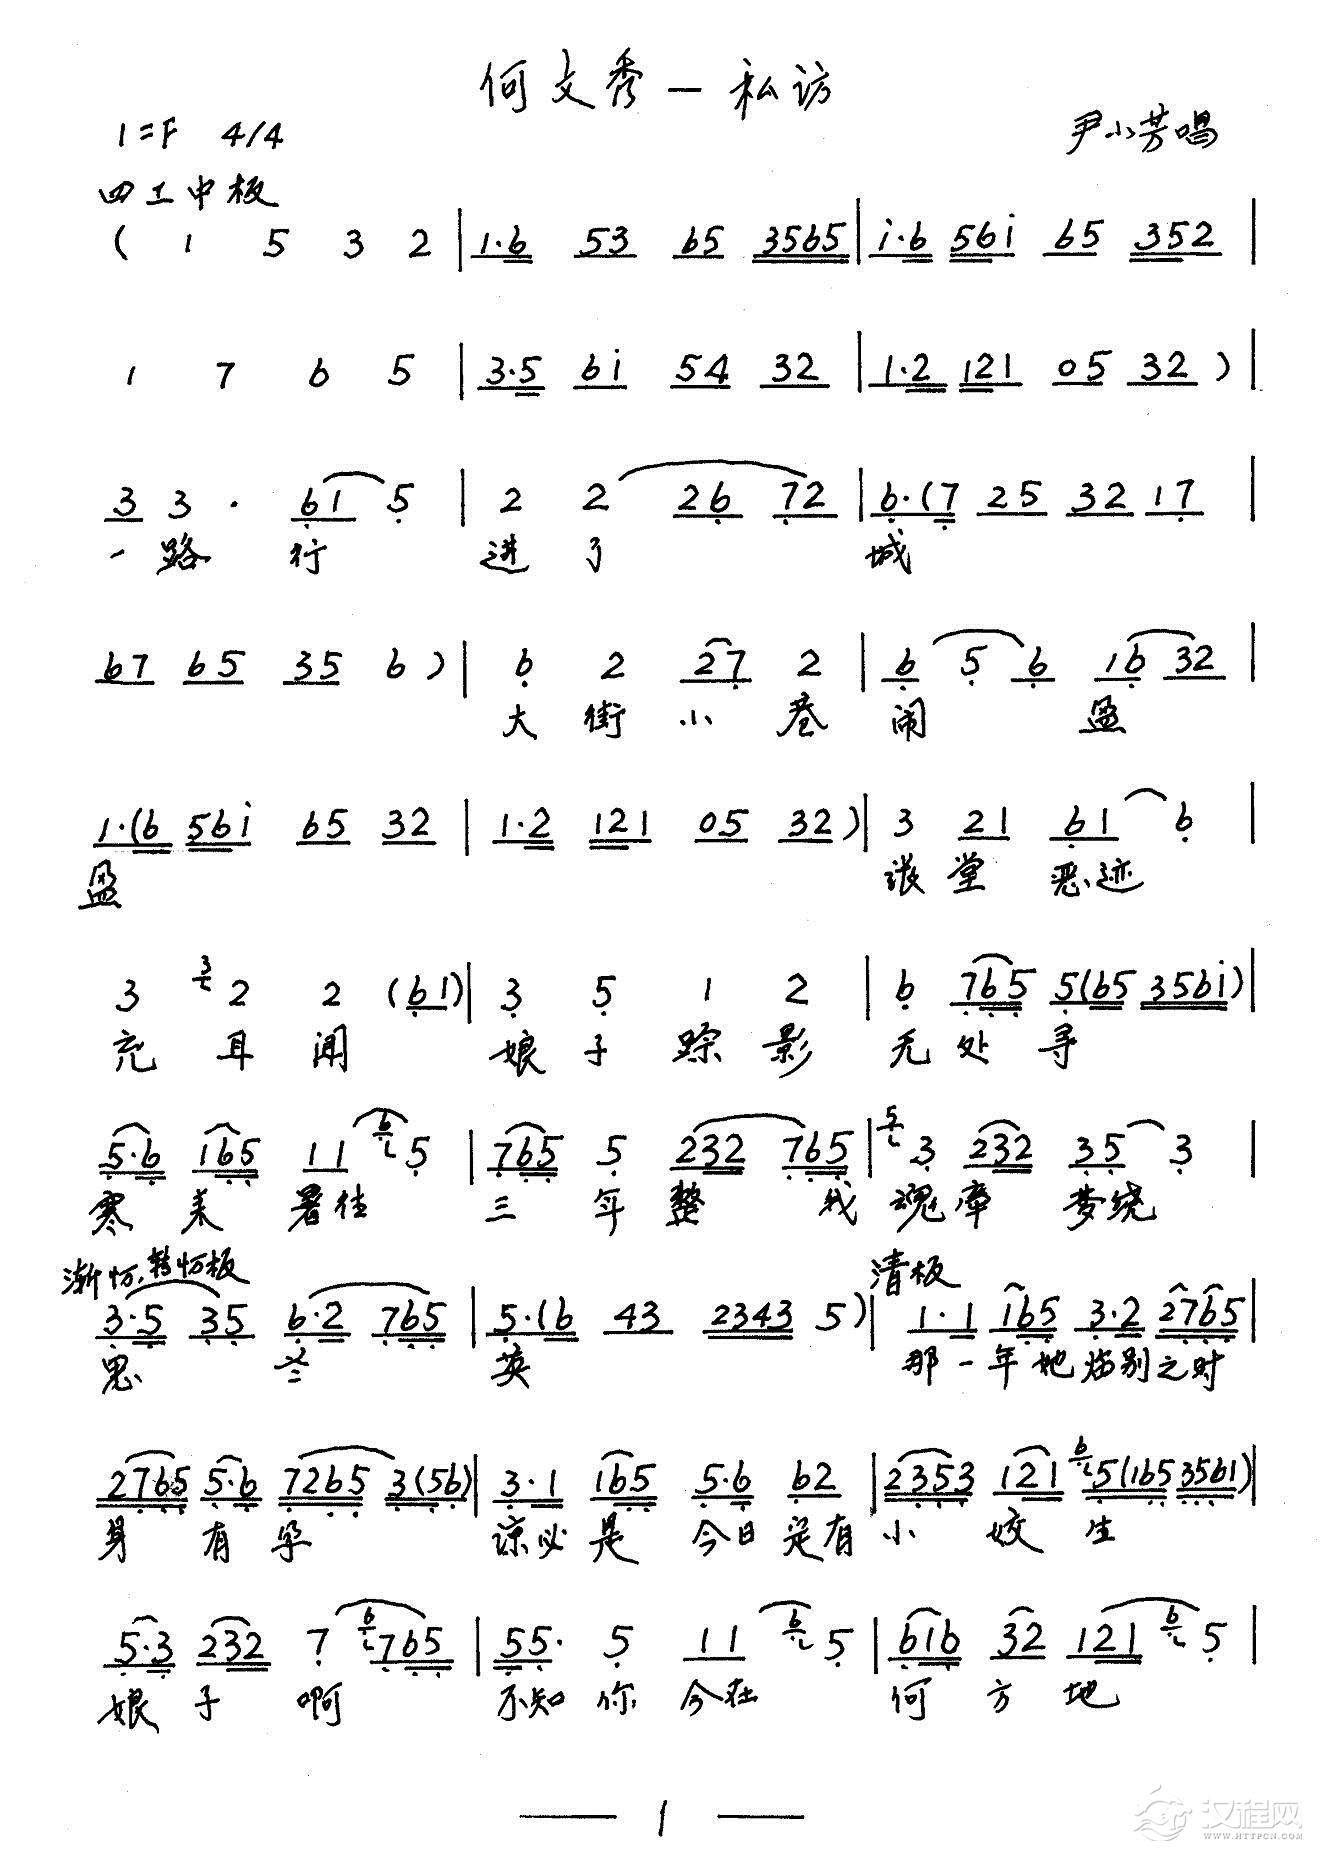 何文秀—私访
1=F 4/4
尹小芳唱
四工中板
( 1 5 3 2 | 1·6 53 65 3565 | i·6 56i 65 352 |
1 7 6 5 | 3·5 6i 54 32 | 1·2 121 05 32 ) |
3 3 · 61 5 | 2 2 26 72 | 6·(7 25 32 17 |
一路 行 进了 城
67 65 35 6 ) | 6 2 27 2 | 6 5 6 16 32 |
大街小巷 闹 盈
1·(6 56i 65 32 | 1·2 121 05 32 ) | 3 21 61 6 |
盈 张堂恶迹
3 3 2 2 (61) | 3 5 1 2 | 6 765 5(65 356i) |
充耳闻 娘子踪影 无处寻
5·6 165 11 6 5 | 765 5 232 765 | 5 3 232 35 3 |
寒来暑往 三年整 我 魂牵梦绕
渐忉,转忉板
清板
3·5 35 6·2 765 | 5·(6 43 2343 5 ) | 1·1 165 3·2 2765 |
思 冬 英 那一年她临别之时
2765 5·6 7265 3(56) | 3·1 165 5·6 62 | 2353 121 6 5(165 3561) |
身有孕 谅必是 今日定有 小姣生
5·3 232 7 6 765 | 55· 5 11 6 5 | 616 32 121 6 5 |
娘子啊 不知你今在 何方地
— 1 —
汉程网
WWW.HTTPCN.COM